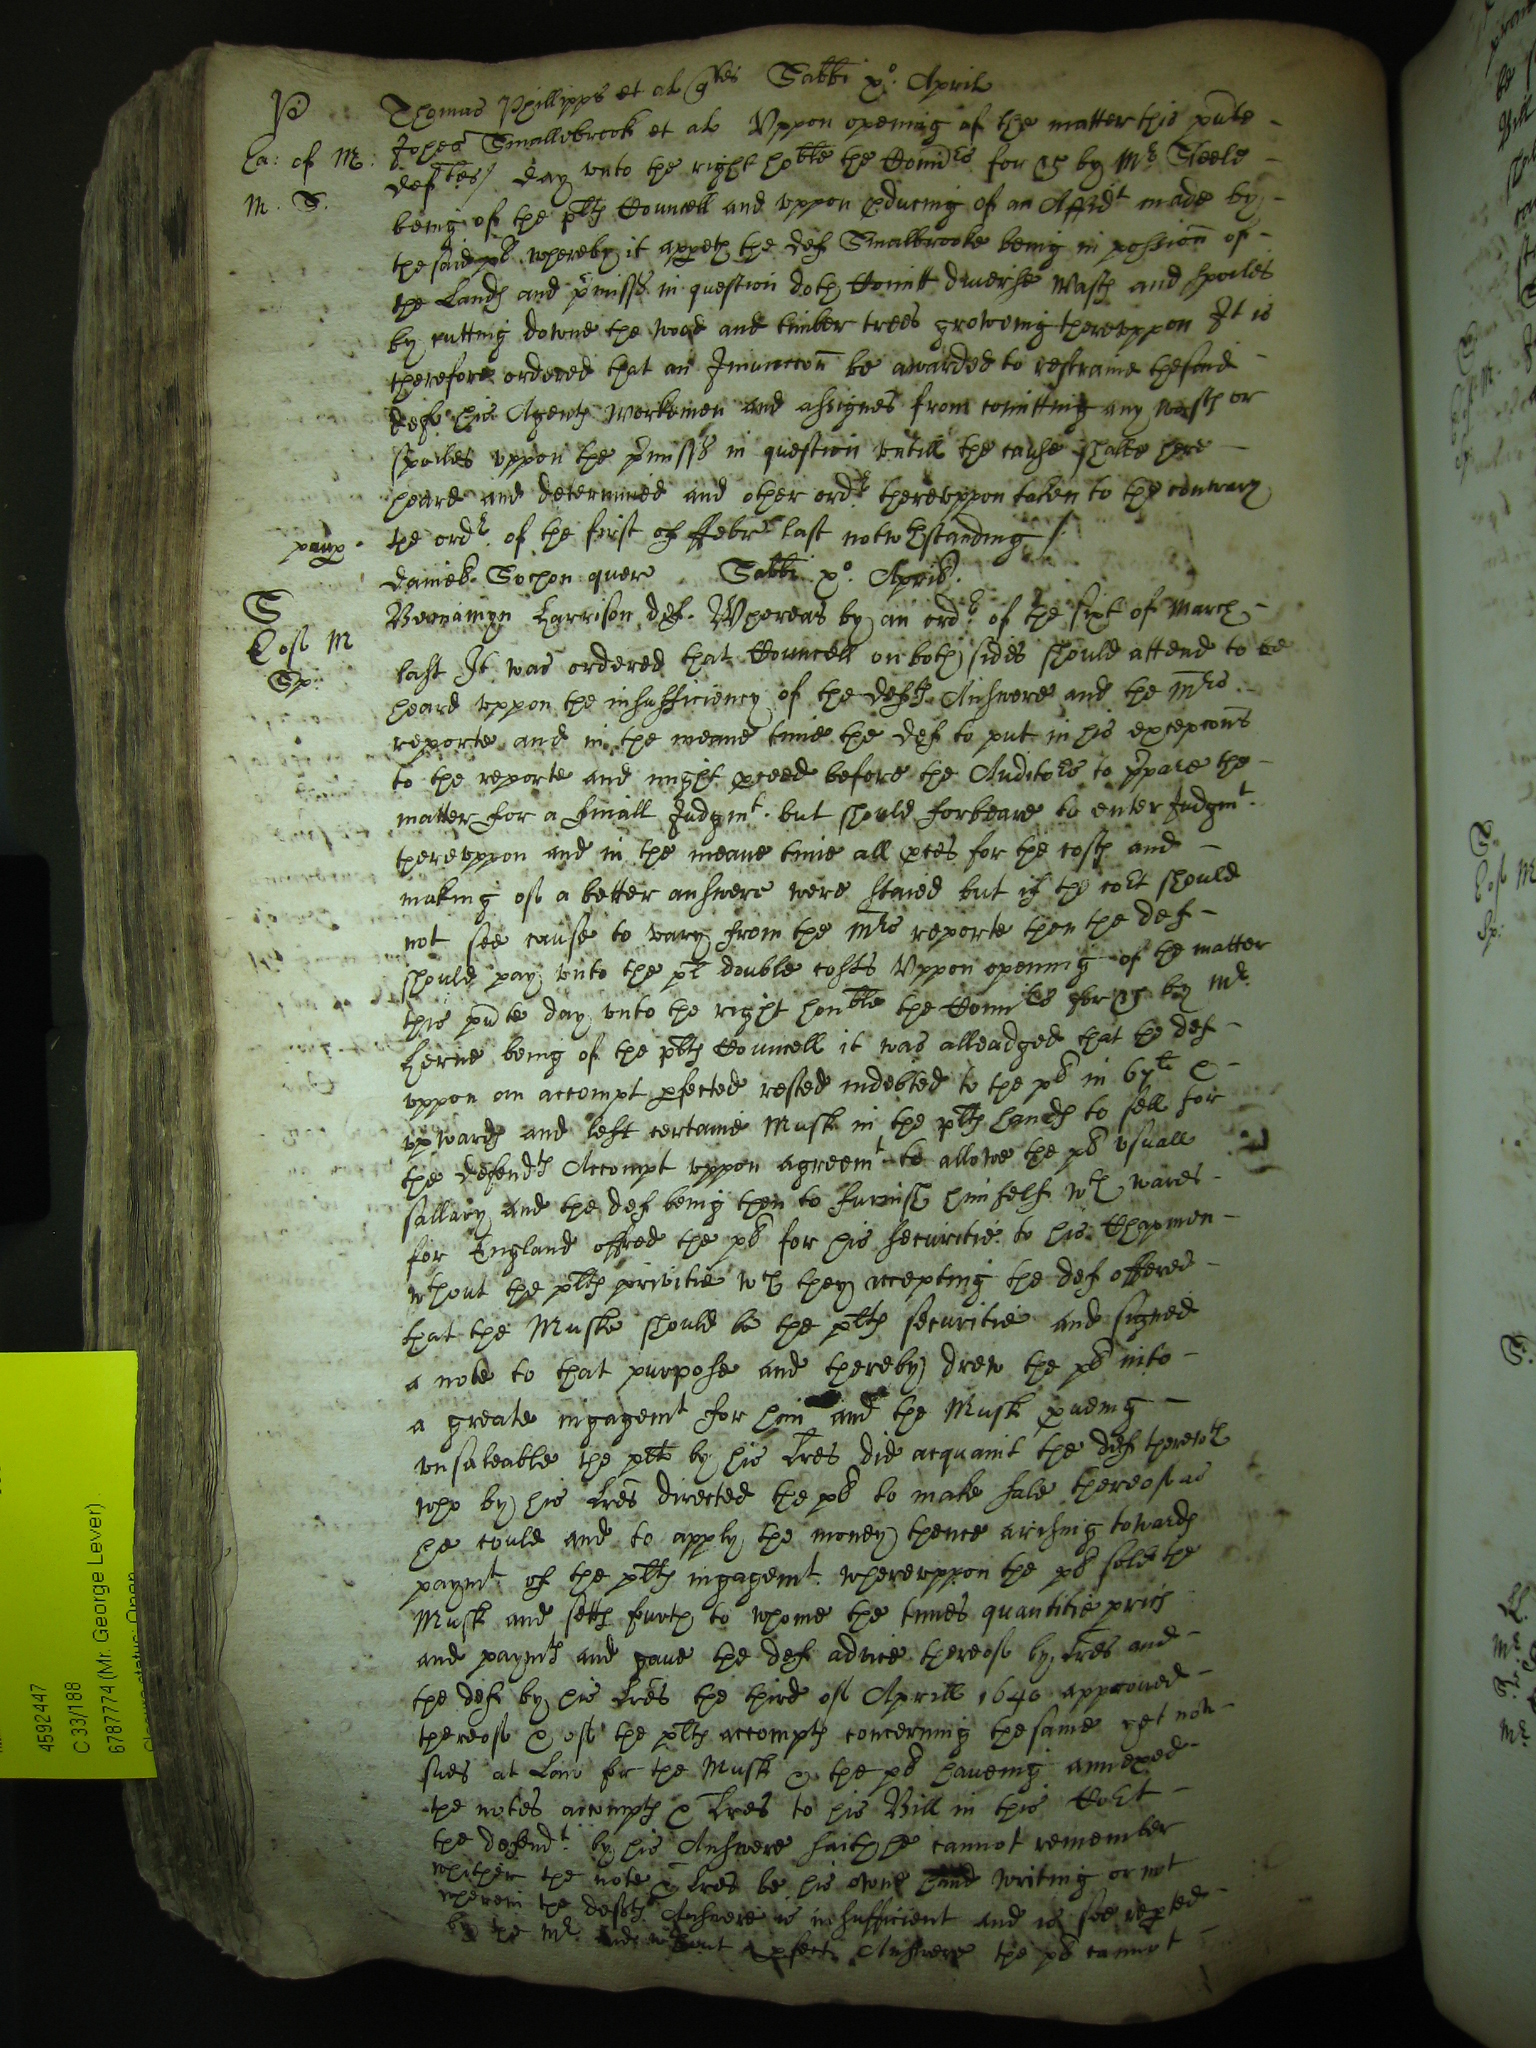 P
Thomas Phillipps et al ques Sabbi xo. April
La: of M: Johes Smallebrook et al Vppon opening of the matter this pnte
M. S. deftes / day vnto the right hoble the Comrs for G by Mr Steele
being of the plts Councell and vppon pducing of an Affidt made by
the said pl whereby it appeth the def Smalbrooke being in possion of
the Lands and pmisss in question doth Comitt diuerse Wasts and spoiles
by cutting downe the wood and timber trees growing therevppon It is
therefore ordered that an Iniunccon be awarded to restraine the said
deft his Agents workemen and assignes from comitting any wasts or
spoiles vppon the pmisss in question vntill the cause shalbe here
heard and determined and other ordr therevppon taken to the contrary
the ordr of the first of ffebr last notwthstanding /.
paup
Daniel Sochon quer Sabbi xo. April.
S Beniamyn Harrison def. Whereas by an ordr of the sixt of March
Cost M last It was ordered that Councell on both sides should attend to be
Sp: heard vppon the insufficiency of the defts Answere and the Mrs
reporte and in the meane time the def to put in his excepcons
to the reporte and might pceed before the Auditors to ppare the
matter for a finall Judgmt. but should forbeare to enter Judgmt.
therevppon and in the meane time all pces for the costs and
making of a better answere were staied but if the cort should
not see cause to vary from the Mrs reporte then the def
should pay vnto the pl double costs Vppon opening of the matter
this pnte day vnto the right honble the Comrs for G by Mr.
Herne being of the plts Councell it was alleadged that the def
vppon an accompt pfected rested indebted to the pl in 67li &
vpwards and left certaine Musk in the plts hands to sell for
the defendts Accompt vppon agreemt to allowe the pl vsuall
sallary and the def being then to furnish himself wth wares
for England offred the pl for his securitie to his Chapmen
wthout the plts privitie wch they accepting the def offered
that the Muske should be the plts securitie and signed
a note to that purpose and thereby drew the pl into
a greate ingagemt for him and the Musk pueing
vnsaleable the plt by his Lres did acquaint the def therewth
who by his Lres directed the pl to make sale thereof as
he could and to apply the money thence arising towards
paymt of the plts ingagemt wherevppon the pl sold the
Musk and setts furth to whome the times quantitie prics
and paymts and gaue the def advice thereof by Lres and
the def by his Lres the third of Aprill 1640 approued
thereof & of the plts accompts concerning the same yet now
sues at Law for the Musk & the pl haueing annexed
the notes accompts & Lres to his Bill in this Cort
the defendt by his Answere saith he cannot remember
whither the note & Lres be his owne hand writing or not
wherein the defts Answere is insufficient and is soe repted
by the Mr. and wthout a pfect Answere the pl cannot
4592447
C 33/188
6787774 (Mr. George Lever)